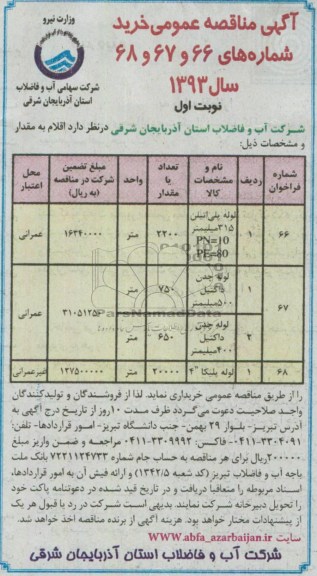 آگهی مناقصه عمومی خرید
شماره‌های ۶۶ و ۶۷ و ۶۸
سال ۱۳۹۳
نوبت اول
وزارت نیرو
شرکت سهامی آب و فاضلاب
استان آذربایجان شرقی
شرکت آب و فاضلاب استان آذربایجان شرقی درنظر دارد اقلام به مقدار
و مشخصات ذیل:
شماره فراخوان | ردیف | نام و مشخصات کالا | تعداد یا مقدار | واحد | مبلغ تضمین شرکت در مناقصه (به ریال) | محل اعتبار
۶۶ | ۱ | لوله پلی‌اتیلن ۳۱۵میلیمتر PN=10 PE=80 | ۲۲۰۰ | متر | ۱۶۳۴۰۰۰۰ | عمرانی
۶۷ | ۱ | لوله چدن داکتیل ۵۰۰میلیمتر | ۷۵۰ | متر | عمرانی
۲ | لوله چدن داکتیل ۴۰۰میلیمتر | ۶۵۰ | متر
۶۸ | ۱ | لوله پلیکا "۴ | ۲۰۰۰۰ | متر | ۱۲۷۵۰۰۰۰۰ | غیرعمرانی
را از طریق مناقصه عمومی خریداری نماید. لذا از فروشندگان و تولیدکنندگان
واجد صلاحیت دعوت می‌گردد ظرف مدت ۱۰روز از تاریخ درج آگهی به
آدرس تبریز- بلوار ۲۹ بهمن- جنب دانشگاه تبریز- امور قراردادها- تلفن:
۳۳۰۴۰۹۱-۰۴۱۱ فاکس: ۳۳۰۹۹۹۲-۰۴۱۱ مراجعه و ضمن واریز مبلغ
۲۰۰۰۰۰ریال برای هر مناقصه به حساب جام شماره ۷۲۲۱۱۲۴۷۳۳ بانک ملت
باجه آب و فاضلاب تبریز (کد شعبه ۱۳۴۲/۵) و ارائه فیش آن به امور قراردادها،
اسناد مربوطه را متعاقبا دریافت و در تاریخ قید شده در دعوتنامه پاکت خود
را تحویل دبیرخانه شرکت نمایند. بدیهی است شرکت در رد یا قبول هر یک
از پیشنهادات مختار خواهد بود. هزینه آگهی از برنده مناقصه اخذ خواهد شد.
سایت www.abfa_azarbaijan.ir
شرکت آب و فاضلاب استان آذربایجان شرقی